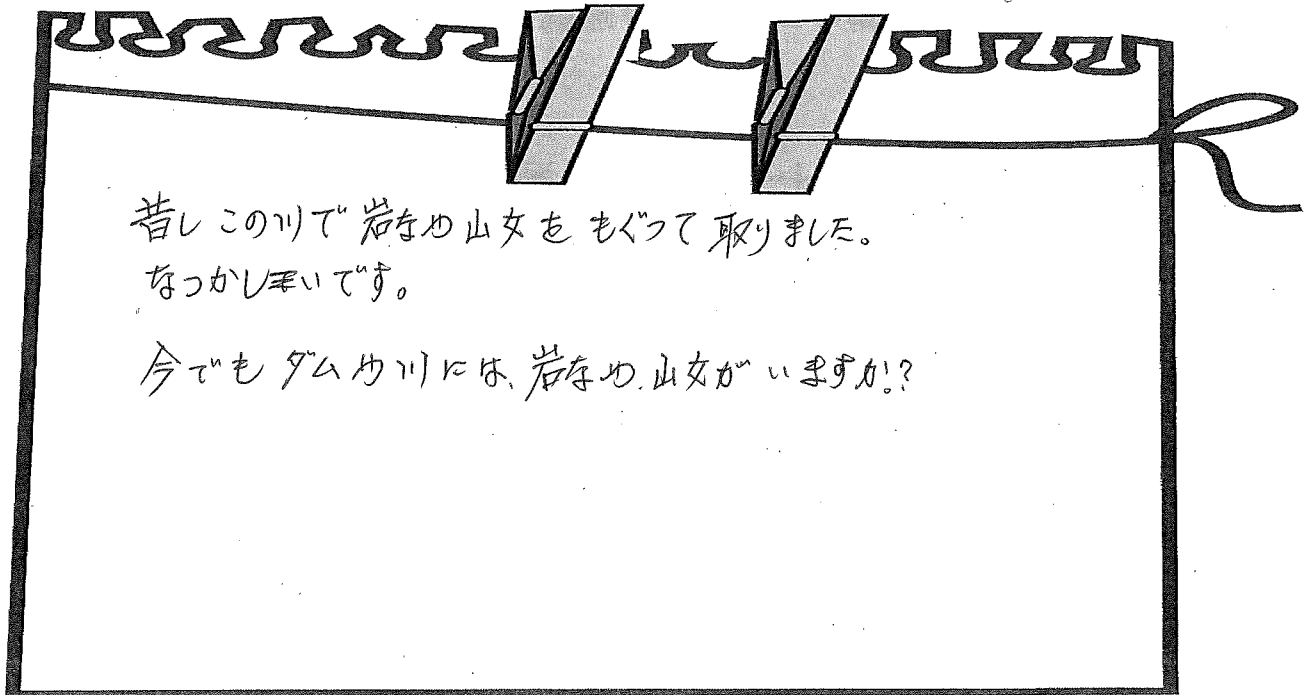 昔し この川で 岩なや山女を もぐって取りました。
なつかしいです。
今でも ダムや川には、岩なや、山女が いますか!?